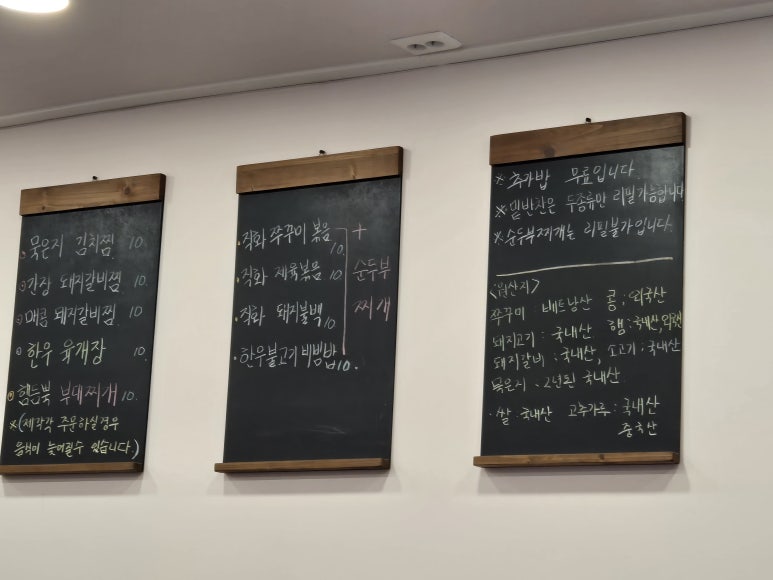 묵은지 김치찜 10.
간장 돼지갈비찜 10.
매콤 돼지갈비찜 10
한우 육개장 10.
부대찌개 10.
※(제각각 주문하실경우
음식이 늦어질수 있습니다.)
·직화 쭈꾸미 볶음 10.
·직화 제육볶음 10
·직화 돼지불백 10
·한우불고기 비빔밥 10.
+
순두부
찌개
※ 추가밥 무료입니다
※ 밑반찬은 두종류만 리필가능합니다
※ 순두부찌개는 리필불가입니다.
<원산지>
쭈꾸미 : 베트남산 콩 : 외국산
돼지고기 : 국내산 햄 : 국내산,외국산
돼지갈비 : 국내산, 소고기 : 국내산
묵은지 : 2년된 국내산
·쌀 : 국내산 고추가루 : 국내산
중국산